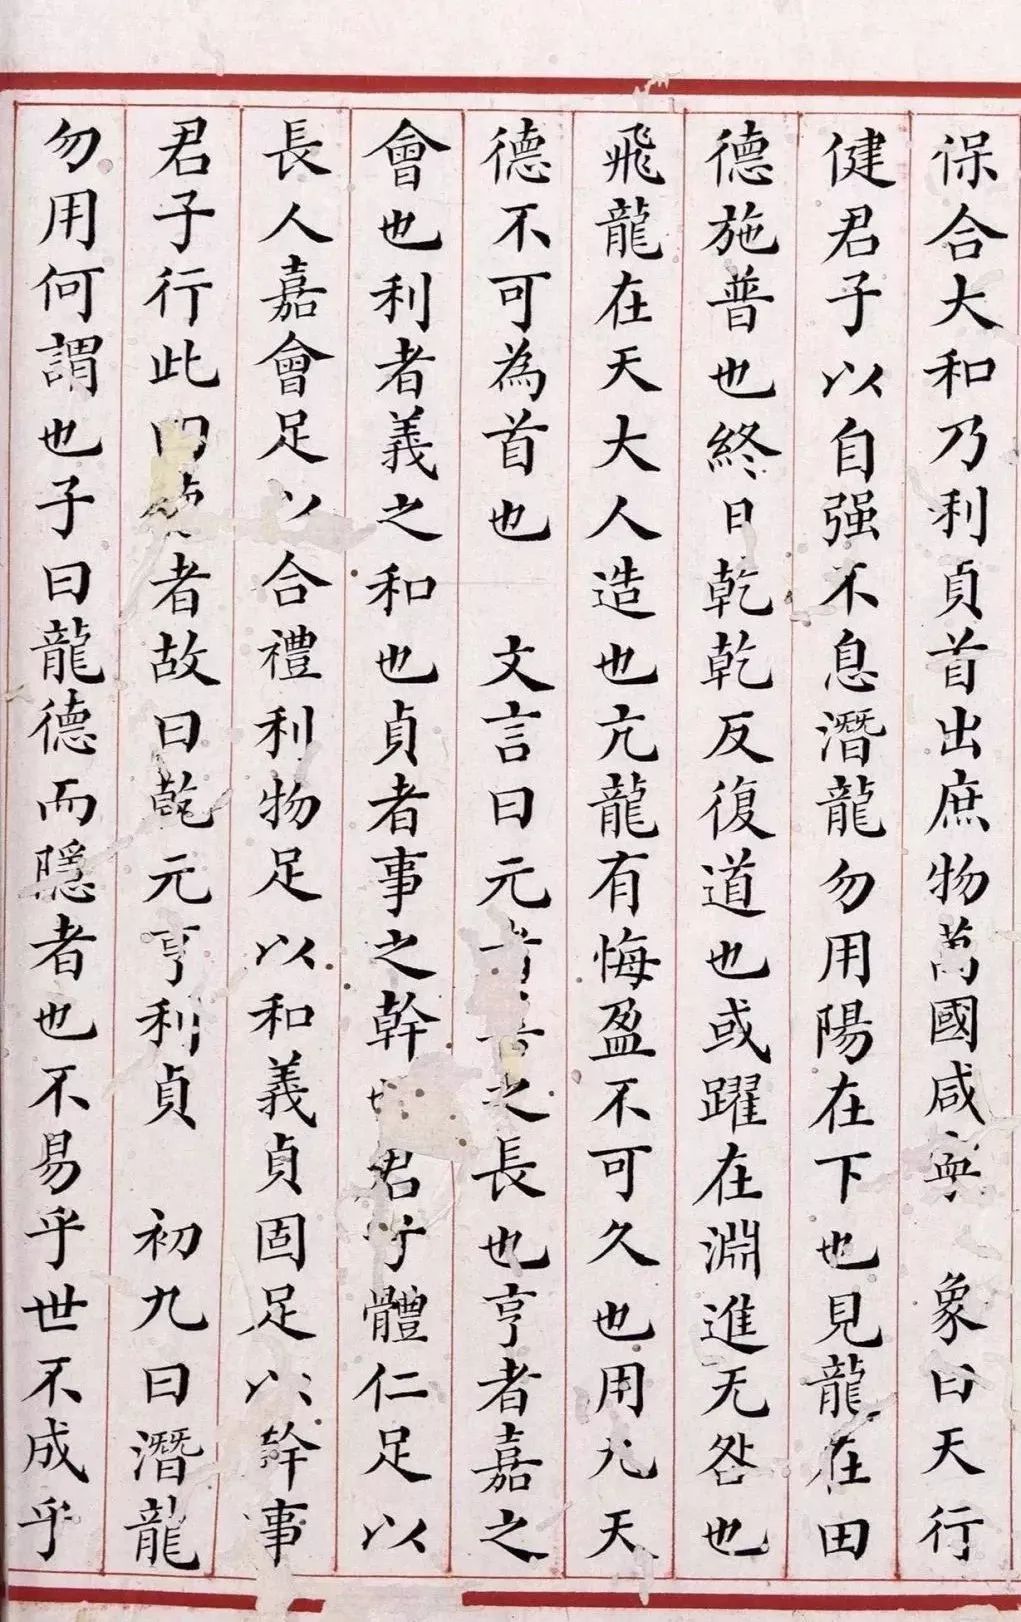 保合大和乃利貞首出庶物萬國咸寧　象曰天行
健君子以自强不息潛龍勿用陽在下也見龍在田
德施普也終日乾乾反復道也或躍在淵進无咎也
飛龍在天大人造也亢龍有悔盈不可久也用九天
德不可為首也　文言曰元者善之長也亨者嘉之
會也利者義之和也貞者事之幹也君子體仁足以
長人嘉會足以合禮利物足以和義貞固足以幹事
君子行此四德者故曰乾元亨利貞　初九曰潛龍
勿用何謂也子曰龍德而隱者也不易乎世不成乎